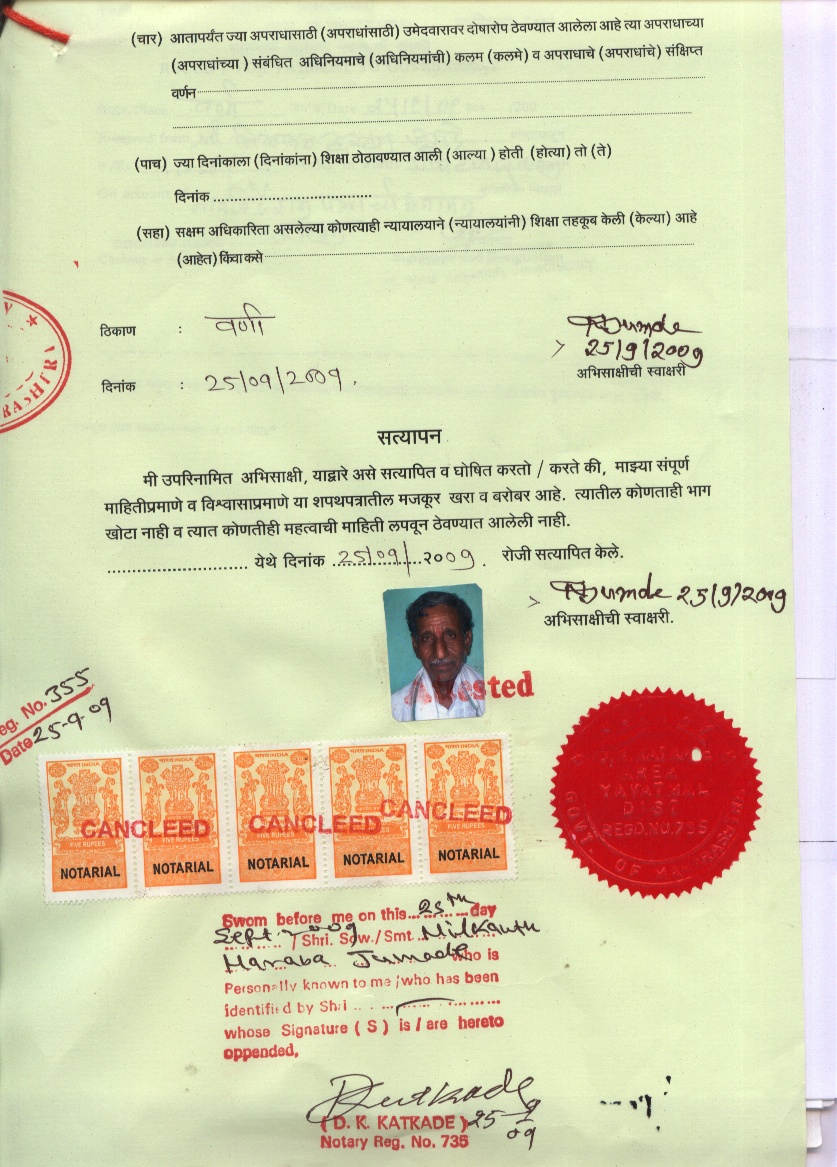 (चार) आतापर्यंत ज्या अपराधासाठी (अपराधांसाठी) उमेदवारावर दोषारोप ठेवण्यात आलेला आहे त्या अपराधाच्या
(अपराधांच्या ) संबंधित अधिनियमाचे (अधिनियमांची) कलम (कलमे) व अपराधाचे (अपराधांचे) संक्षिप्त
वर्णन
(पाच) ज्या दिनांकाला (दिनांकांना) शिक्षा ठोठावण्यात आली (आल्या ) होती (होत्या) तो (ते)
दिनांक ....................................
(सहा) सक्षम अधिकारिता असलेल्या कोणत्याही न्यायालयाने (न्यायालयांनी) शिक्षा तहकूब केली (केल्या) आहे
(आहेत) किंवा कसे
ठिकाण : वणी
25/9/2009
अभिसाक्षीची स्वाक्षरी
दिनांक : 25/09/2009.
RASHTRA
सत्यापन
मी उपरिनामित अभिसाक्षी, याद्वारे असे सत्यापित व घोषित करतो / करते की, माझ्या संपूर्ण
माहितीप्रमाणे व विश्वासाप्रमाणे या शपथपत्रातील मजकूर खरा व बरोबर आहे. त्यातील कोणताही भाग
खोटा नाही व त्यात कोणतीही महत्वाची माहिती लपवून ठेवण्यात आलेली नाही.
........................... येथे दिनांक 25/09/२००9. रोजी सत्यापित केले.
25/9/2009
अभिसाक्षीची स्वाक्षरी.
sted
eg. No. 355
Date 25-9-09
भारत INDIA भारत INDIA भारत INDIA भारत INDIA भारत INDIA
CANCLEED CANCLEED CANCLEED
FIVE RUPEES FIVE RUPEES FIVE RUPEES FIVE RUPEES FIVE RUPEES
NOTARIAL NOTARIAL NOTARIAL NOTARIAL NOTARIAL
AREA
YAVATMAL
DIST
REGD.NO.735
GOVT. OF MAHARASHTRA
Swom before me on this 25th day
Sept. 2009 / Shri. Sow./Smt. Nilkanth
Haraba Jumade who is
Personally known to me /who has been
identified by Shri
whose Signature ( S ) is / are hereto
oppended,
Katkade
( D. K. KATKADE ) 25-9-09
Notary Reg. No. 735